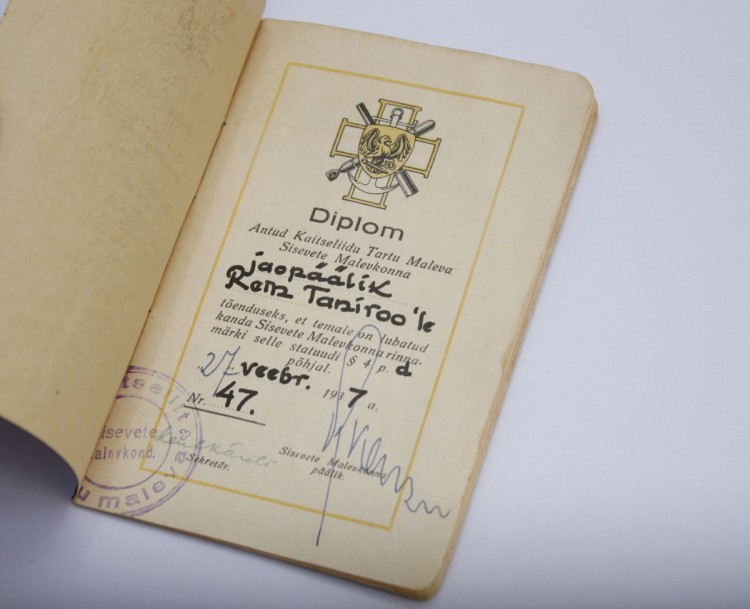 Diplom
Antud Kaitseliidu Tartu Maleva
Sisevete Malevkonna
jaopäälik
Rein Taniroo'le
tõenduseks, et temale on lubatud
kanda Sisevete Malevkonna rinna-
märki selle statuudi § 4 p. d
põhjal.
27. veebr. 1937 a.
Nr. 47.
Sekretär.
Sisevete Malevkonna
päälik.
itseliit
isevete
alevkond.
u maleva